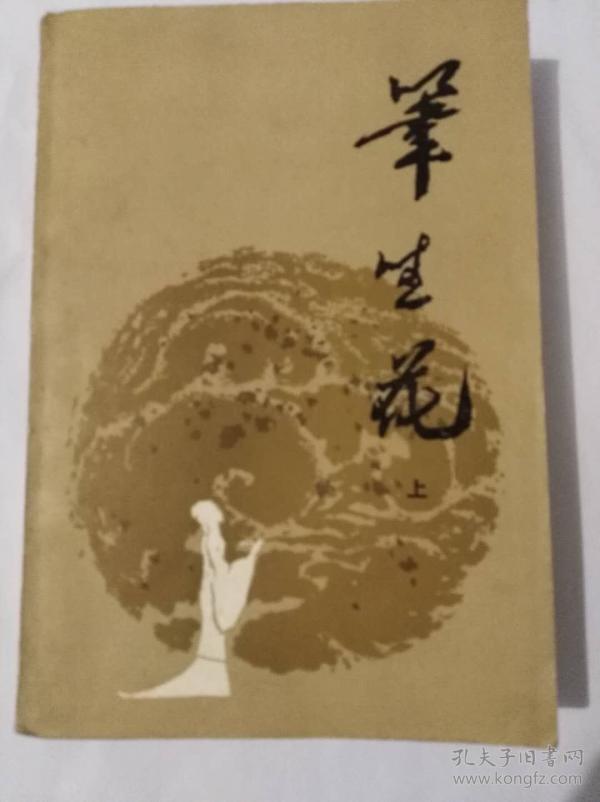 筆生花
上
孔夫子旧書网
www.kongfz.com